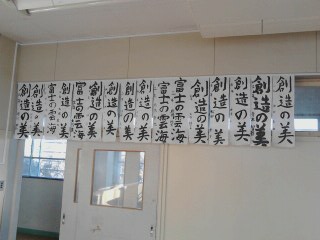 創造の美
創造の美
創造の美
創造の美
創造の美
富士の雲海
富士の雲海
創造の美
創造の美
創造の美
創造の美
富士の雲海
創造の美
富士の雲海
創造の美
創造の美